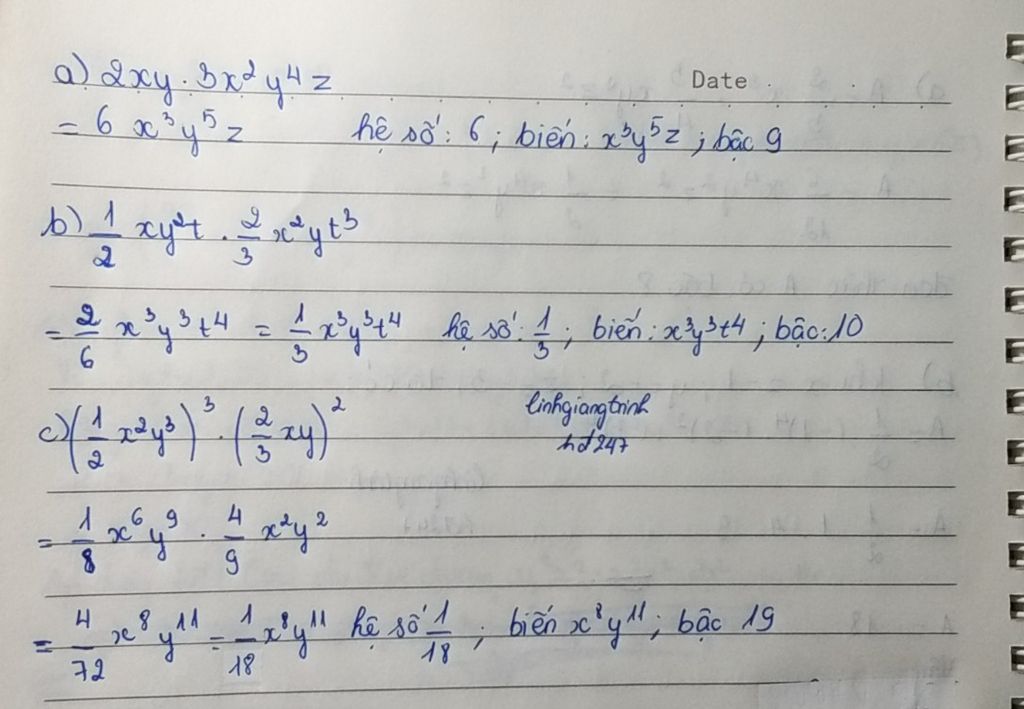 Date
a) 2xy · 3x² y⁴ z
= 6 x³ y⁵ z hệ số: 6 ; biến: x³y⁵z ; bậc 9
b) 1/2 xy²t · 2/3 x²yt³
= 2/6 x³y³t⁴ = 1/3 x³y³t⁴ hệ số: 1/3 ; biến: x³y³t⁴ ; bậc: 10
c) (1/2 x²y³)³ · (2/3 xy)²
linhgiangtrinh
hd247
= 1/8 x⁶y⁹ · 4/9 x²y²
= 4/72 x⁸y¹¹ = 1/18 x⁸y¹¹ hệ số 1/18 ; biến x⁸y¹¹ ; bậc 19